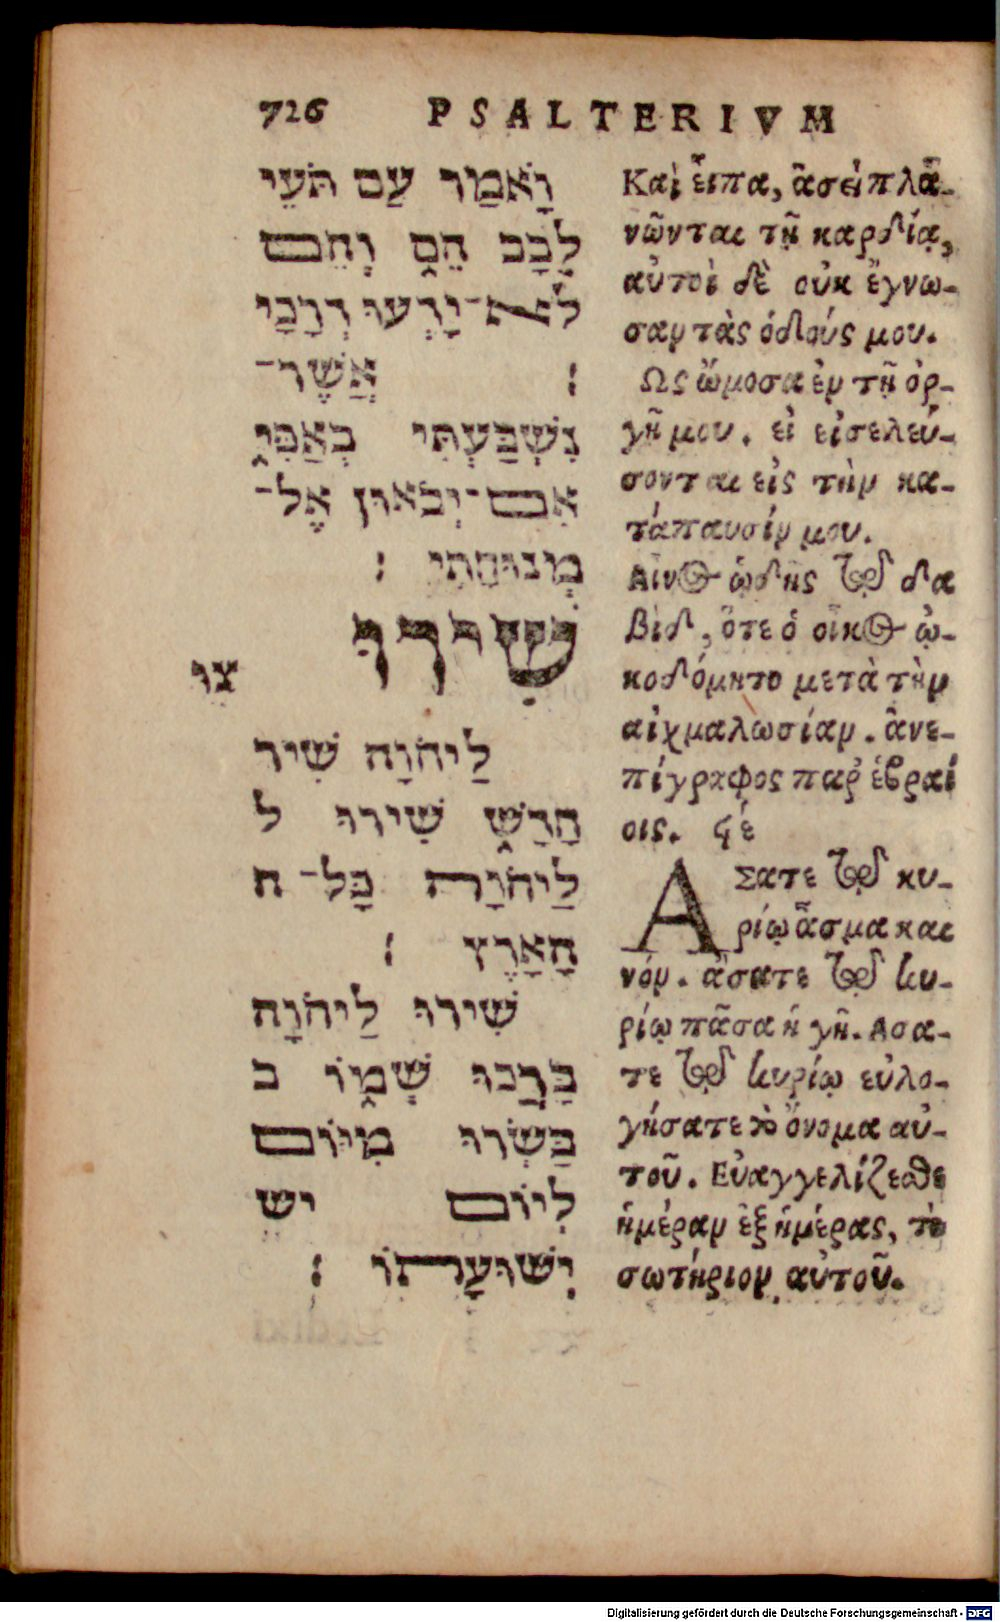 726 PSALTERIVM
וָאֹמַר עַם תֹּעֵי
לֵבָב הֵם וְהֵם
לֹא־יָדְעוּ דְרָכָי
׃ אֲשֶׁר־
נִשְׁבַּעְתִּי בְאַפִּי
אִם־יְבֹאוּן אֶל־
מְנוּחָתִי ׃
שִׁירוּ
צו
לַיהֹוָה שִׁיר
חָדָשׁ שִׁירוּ ל
לַיהֹוָה כָּל־ ה
הָאָרֶץ ׃
שִׁירוּ לַיהֹוָה
בָּרֲכוּ שְׁמוֹ ב
בַּשְּׂרוּ מִיּוֹם
לְיוֹם יש
יְשׁוּעָתוֹ ׃
Καὶ εἶπα, ἀσεὶ πλα-
νῶνται τῇ καρδίᾳ,
αὐτοὶ δὲ οὐκ ἔγνω-
σαν τὰς ὁδούς μου.
Ως ὤμοσα ἐν τῇ ὀρ-
γῇ μου. εἰ εἰσελεύ-
σονται εἰς τὴν κα-
τάπαυσίν μου.
Αἶνος ᾠδῆς τῷ δα
βὶδ, ὅτε ὁ οἶκος ᾠ-
κοδόμητο μετὰ τὴν
αἰχμαλωσίαν. ἀνε-
πίγραφος παρ' ἑβραί
οις. ϟέ
ΑΣατε τῷ κυ-
ρίῳ ᾆσμα και
νόν. ᾄσατε τῷ κυ-
ρίῳ πᾶσα ἡ γῆ. Ασα-
τε τῷ κυρίῳ εὐλο-
γήσατε τὸ ὄνομα αὐ-
τοῦ. Εὐαγγελίζεσθε
ἡμέραν ἐξ ἡμέρας, τὸ
σωτήριον αὐτοῦ.
Digitalisierung gefördert durch die Deutsche Forschungsgemeinschaft - DFG